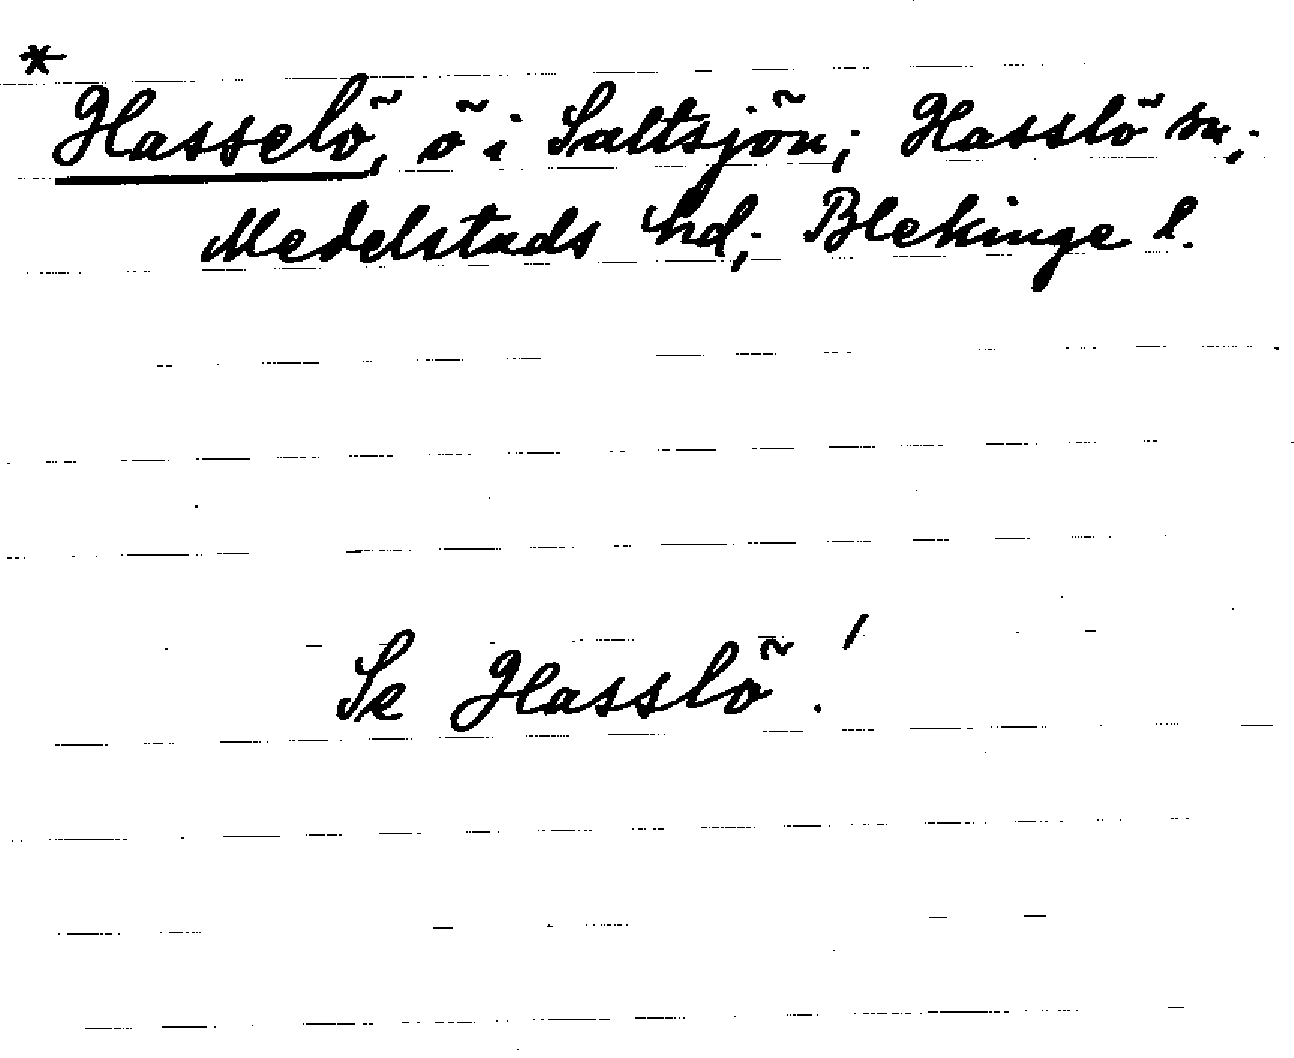 *
Hasselö, ö i Saltsjön; Hasslö sn;
Medelstads hd; Blekinge l.
Se Hasslö!